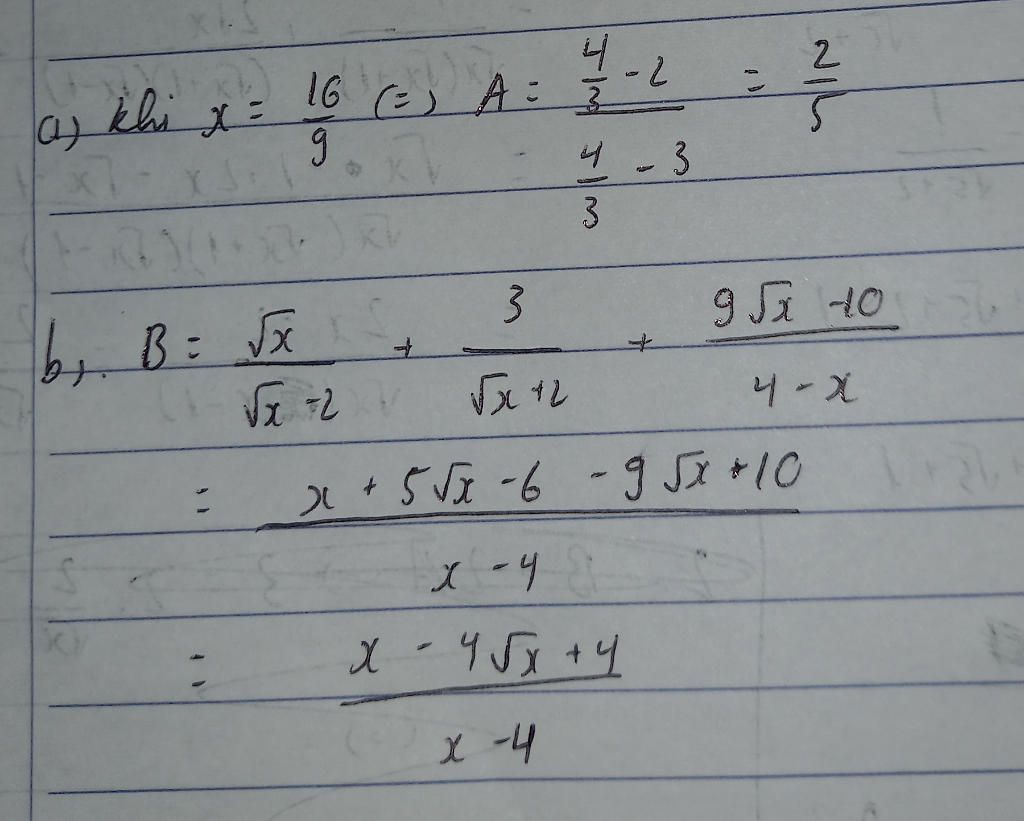 a) khi x = 16/9 (=) A = (4/3 - 2)/(4/3 - 3) = 2/5
b). B = √x/(√x - 2) + 3/(√x + 2) + (9√x - 10)/(4 - x)
= (x + 5√x - 6 - 9√x + 10)/(x - 4)
= (x - 4√x + 4)/(x - 4)